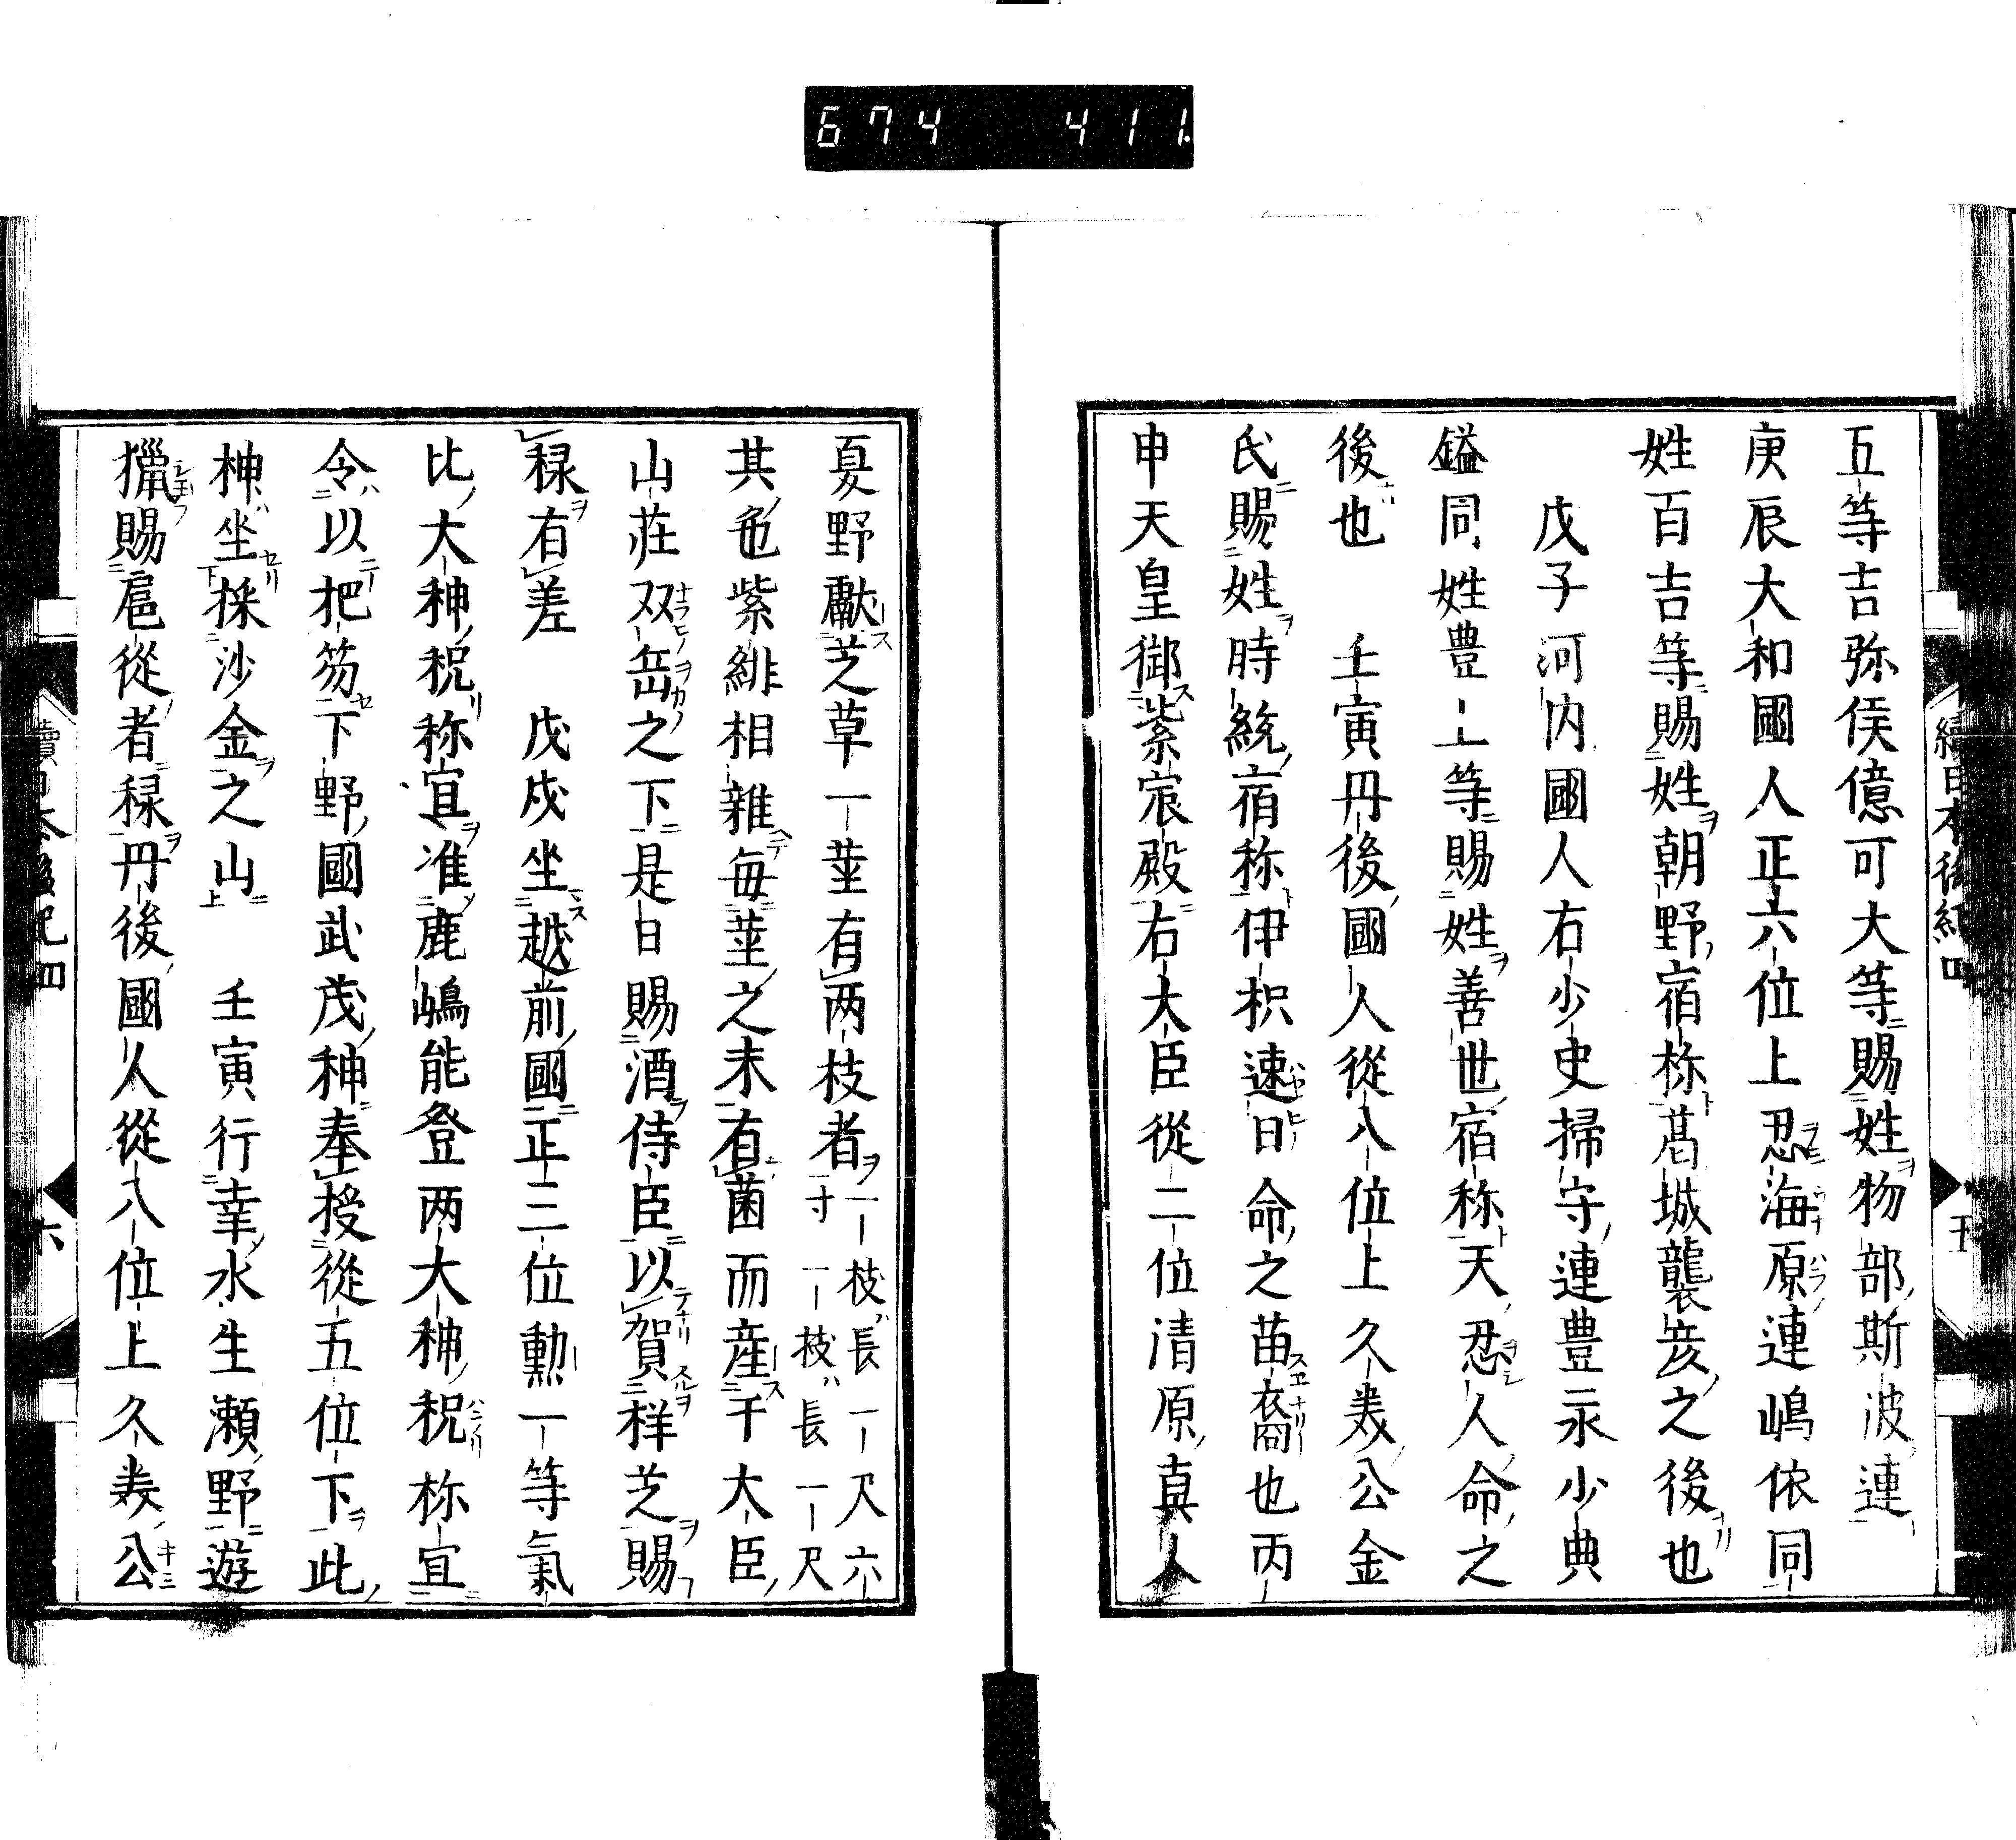 674 411
續日本後紀四
五
五等吉弥侯億可大等賜姓物部斯波連
庚辰大和國人正六位上忍海原連嶋依同
姓百吉等賜姓朝野宿祢葛城襲彦之後也
戊子河内國人右少史掃守連豊永少典
鎰同姓豊上等賜姓善世宿祢天忍人命之
後也　壬寅丹後國人從八位上久美公金
氏賜姓時統宿祢伊枳速日命之苗裔也丙
申天皇御紫宸殿右大臣從二位清原真人
夏野獻芝草一莖有兩枝者一枝長一尺六寸一枝長一尺
其色紫緋相雜每莖之末有菌而産于大臣
山荘双岳之下是日賜酒侍臣以賀祥芝賜
禄有差　戊戌坐越前國正三位勲一等氣
比大神祝祢宜准鹿嶋能登兩大神祝祢宜
令以把笏下野國武茂神奉授從五位下此
神坐採沙金之山　壬寅行幸水生瀬野遊
獵賜扈從者禄丹後國人從八位上久美公
續日本後紀四
六